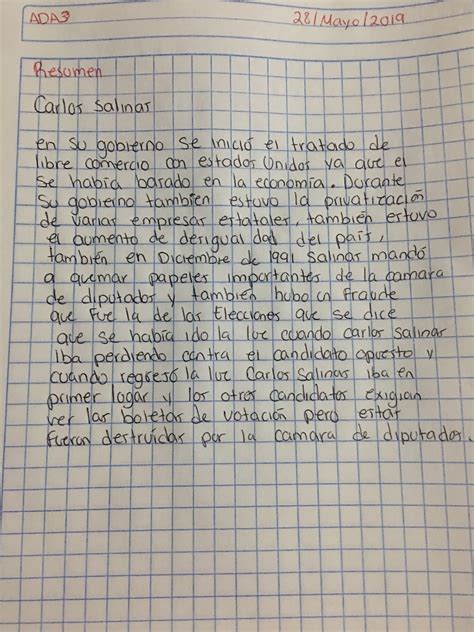 ADA3 28/Mayo/2019
Resumen
Carlos Salinas
en su gobierno se inició el tratado de
libre comercio con estados Unidos ya que el
se había basado en la economía. Durante
su gobierno tambien estuvo la privatización
de varias empresas estatales, también estuvo
el aumento de desigualdad del país,
también en Diciembre de 1991 Salinas mandó
a quemar papeles importantes de la camara
de diputados y también hubo un fraude
que fue la de las Elecciones que se dice
que se había ido la luz cuando carlos salinas
iba perdiendo contra el candidato opuesto y
cuando regresó la luz Carlos Salinas iba en
primer lugar y los otros candidatos exigian
ver las boletas de votación pero estas
fueron destruídas por la camara de diputados.